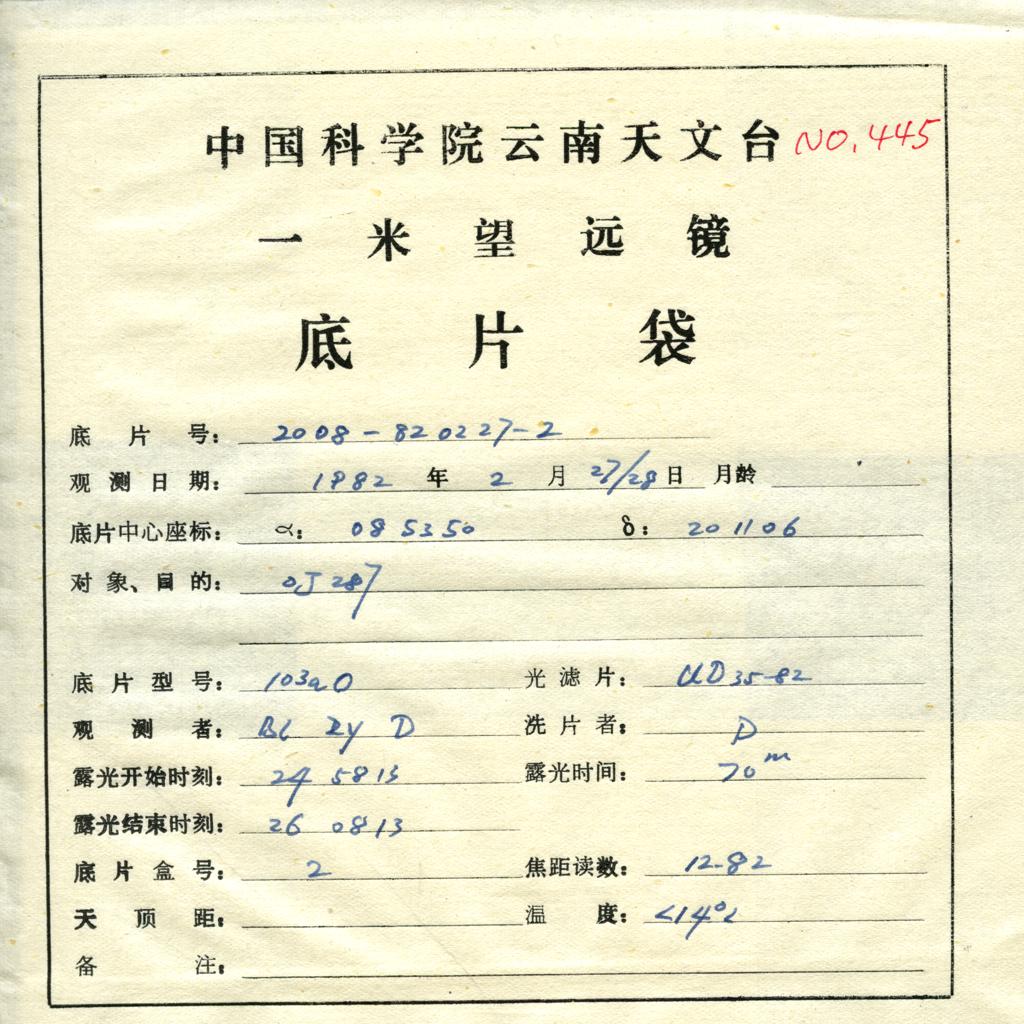 中国科学院云南天文台 NO.445
一米望远镜
底片袋
底片号： 2008-820227-2
观测日期： 1982 年 2 月 27/28 日 月龄
底片中心座标： α： 08 53 50 δ： 20 11 06
对象、目的： OJ 287
底片型号： 103aO 光滤片： UD 35-82
观测者： BL ZY D 洗片者： D
露光开始时刻： 24 58 13 露光时间： 70m
露光结束时刻： 26 08 13
底片盒号： 2 焦距读数： 12.82
天顶距： 温度： <14°c
备注：